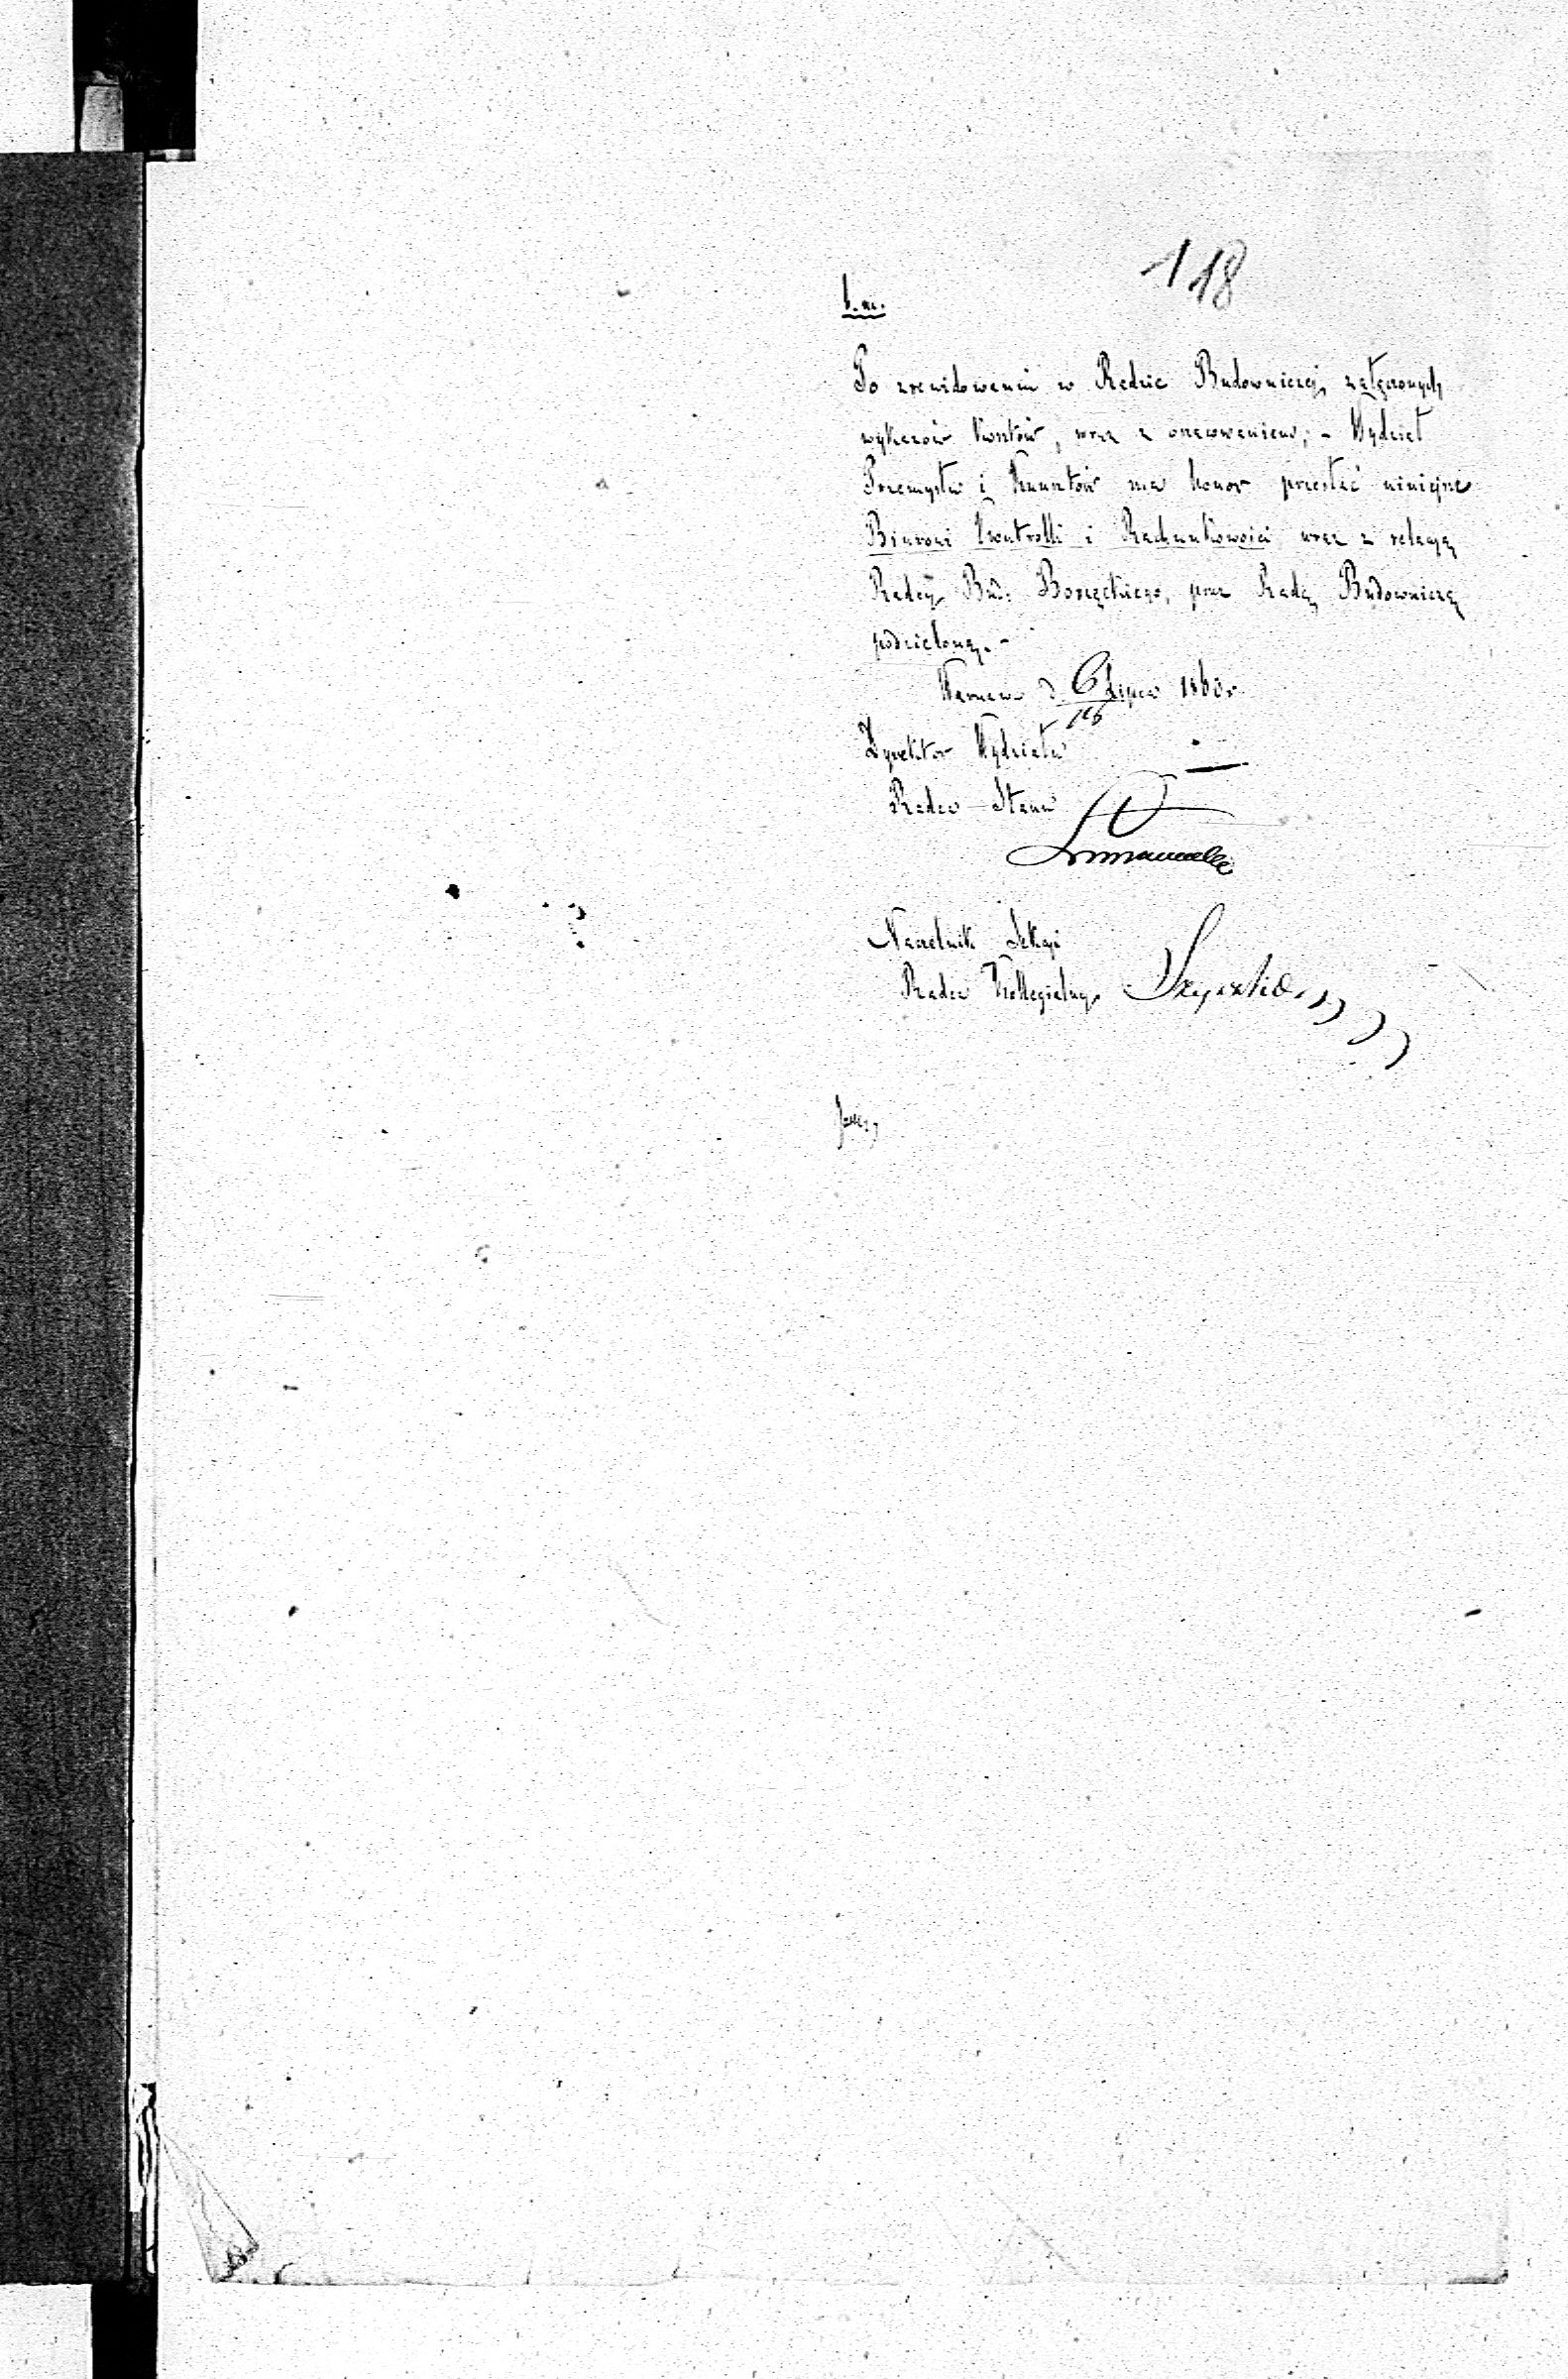 118
b. m.
Po zrewidowaniu w Radzie Budowniczej załączonych
wykazów kosztów, wraz z oszacowaniem; - Wydział
Przemysłu i Kunsztów ma honor przesłać niniejsze
Biurowi Kontrolli i Rachunkowości wraz z relacyą
Radcy Bud: Borzęckiego, przez Radę Budowniczą
podzieloną. -
Warszawa d 6/18 Lipca 1860 r
Dyrektor Wydziału
Radca Stanu
Naczelnik Sekcyi
Radca Kollegialny